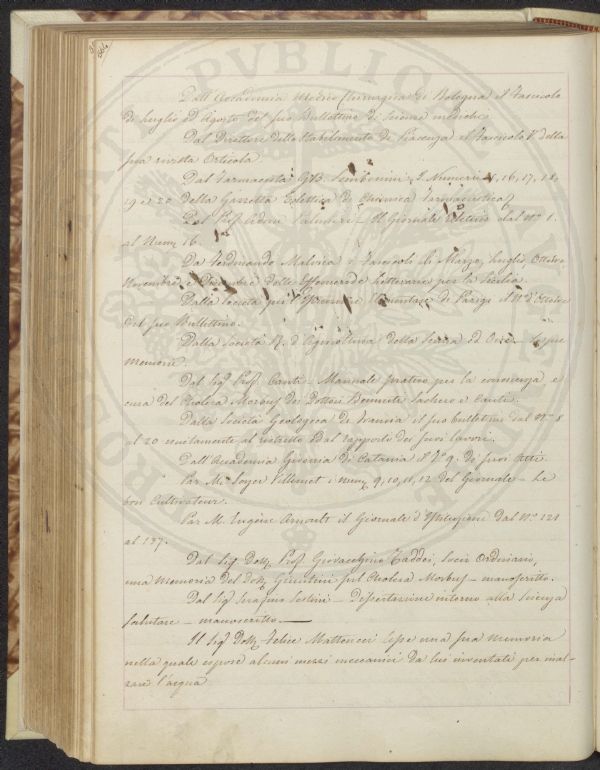 Dall'Accademia Medico Chirurgica di Bologna il Fascicolo
di Luglio ed Agosto del suo Bullettino di Scienze mediche.
Dal Direttore dello Stabilimento di Piacenza il Fascicolo V della
sua rivista Orticola.
Dal Farmacista GB. Sembenini I Numeri 16, 17, 18,
19 e 20 della Gazzetta Eclettica di Chimica Farmaceutica
Dal Prof. Il Giornale dal N.º 1.
al Num. 16.
Da Ferdinando Malvica i Fascicoli di Marzo, Luglio, Ottobre
Novembre e Dicembre delle Effemeridi Letterarie per la Sicilia.
Dalla Società per l'Istruzione Elementare di Parigi il N.º d'Ottobre
del suo Bullettino.
Dalla Società R. d'Agricoltura della Senna ed Oise le sue
memorie
Dal Sig. Prof. Cantù - Manuale pratico per la conoscenza e
cura del Cholera Morbus dei Dottori Bonnente Sachero e Cantù.
Dalla Società Geologica di Francia il suo bullettino dal N.º 8
al 20 unitamente al ristretto ed al rapporto dei suoi lavori.
Dall'Accademia Gioenia di Catania il T.º 9. de suoi Atti.
Par M. Soyer Villemet i num. 9, 10, 11, 12 del Giornale - Le
bon Cultivateur.
Par M. Eugène Amoult il Giornale d'Istruzione dal N.º 121
al 137.
Dal Sig. Dott. Prof. Giovacchino Taddei, Socio Ordinario,
una memoria del dott. Giuntini sul Cholera Morbus - manoscritto.
Dal Sig. Serafino Sestini - Dissertazione intorno alla Scienza
salutare - manoscritto.
Il Sig. Dott. Felice Matteucci lesse una sua memoria
nella quale espose alcuni mezzi meccanici da lui inventati per inal-
zare l'acqua